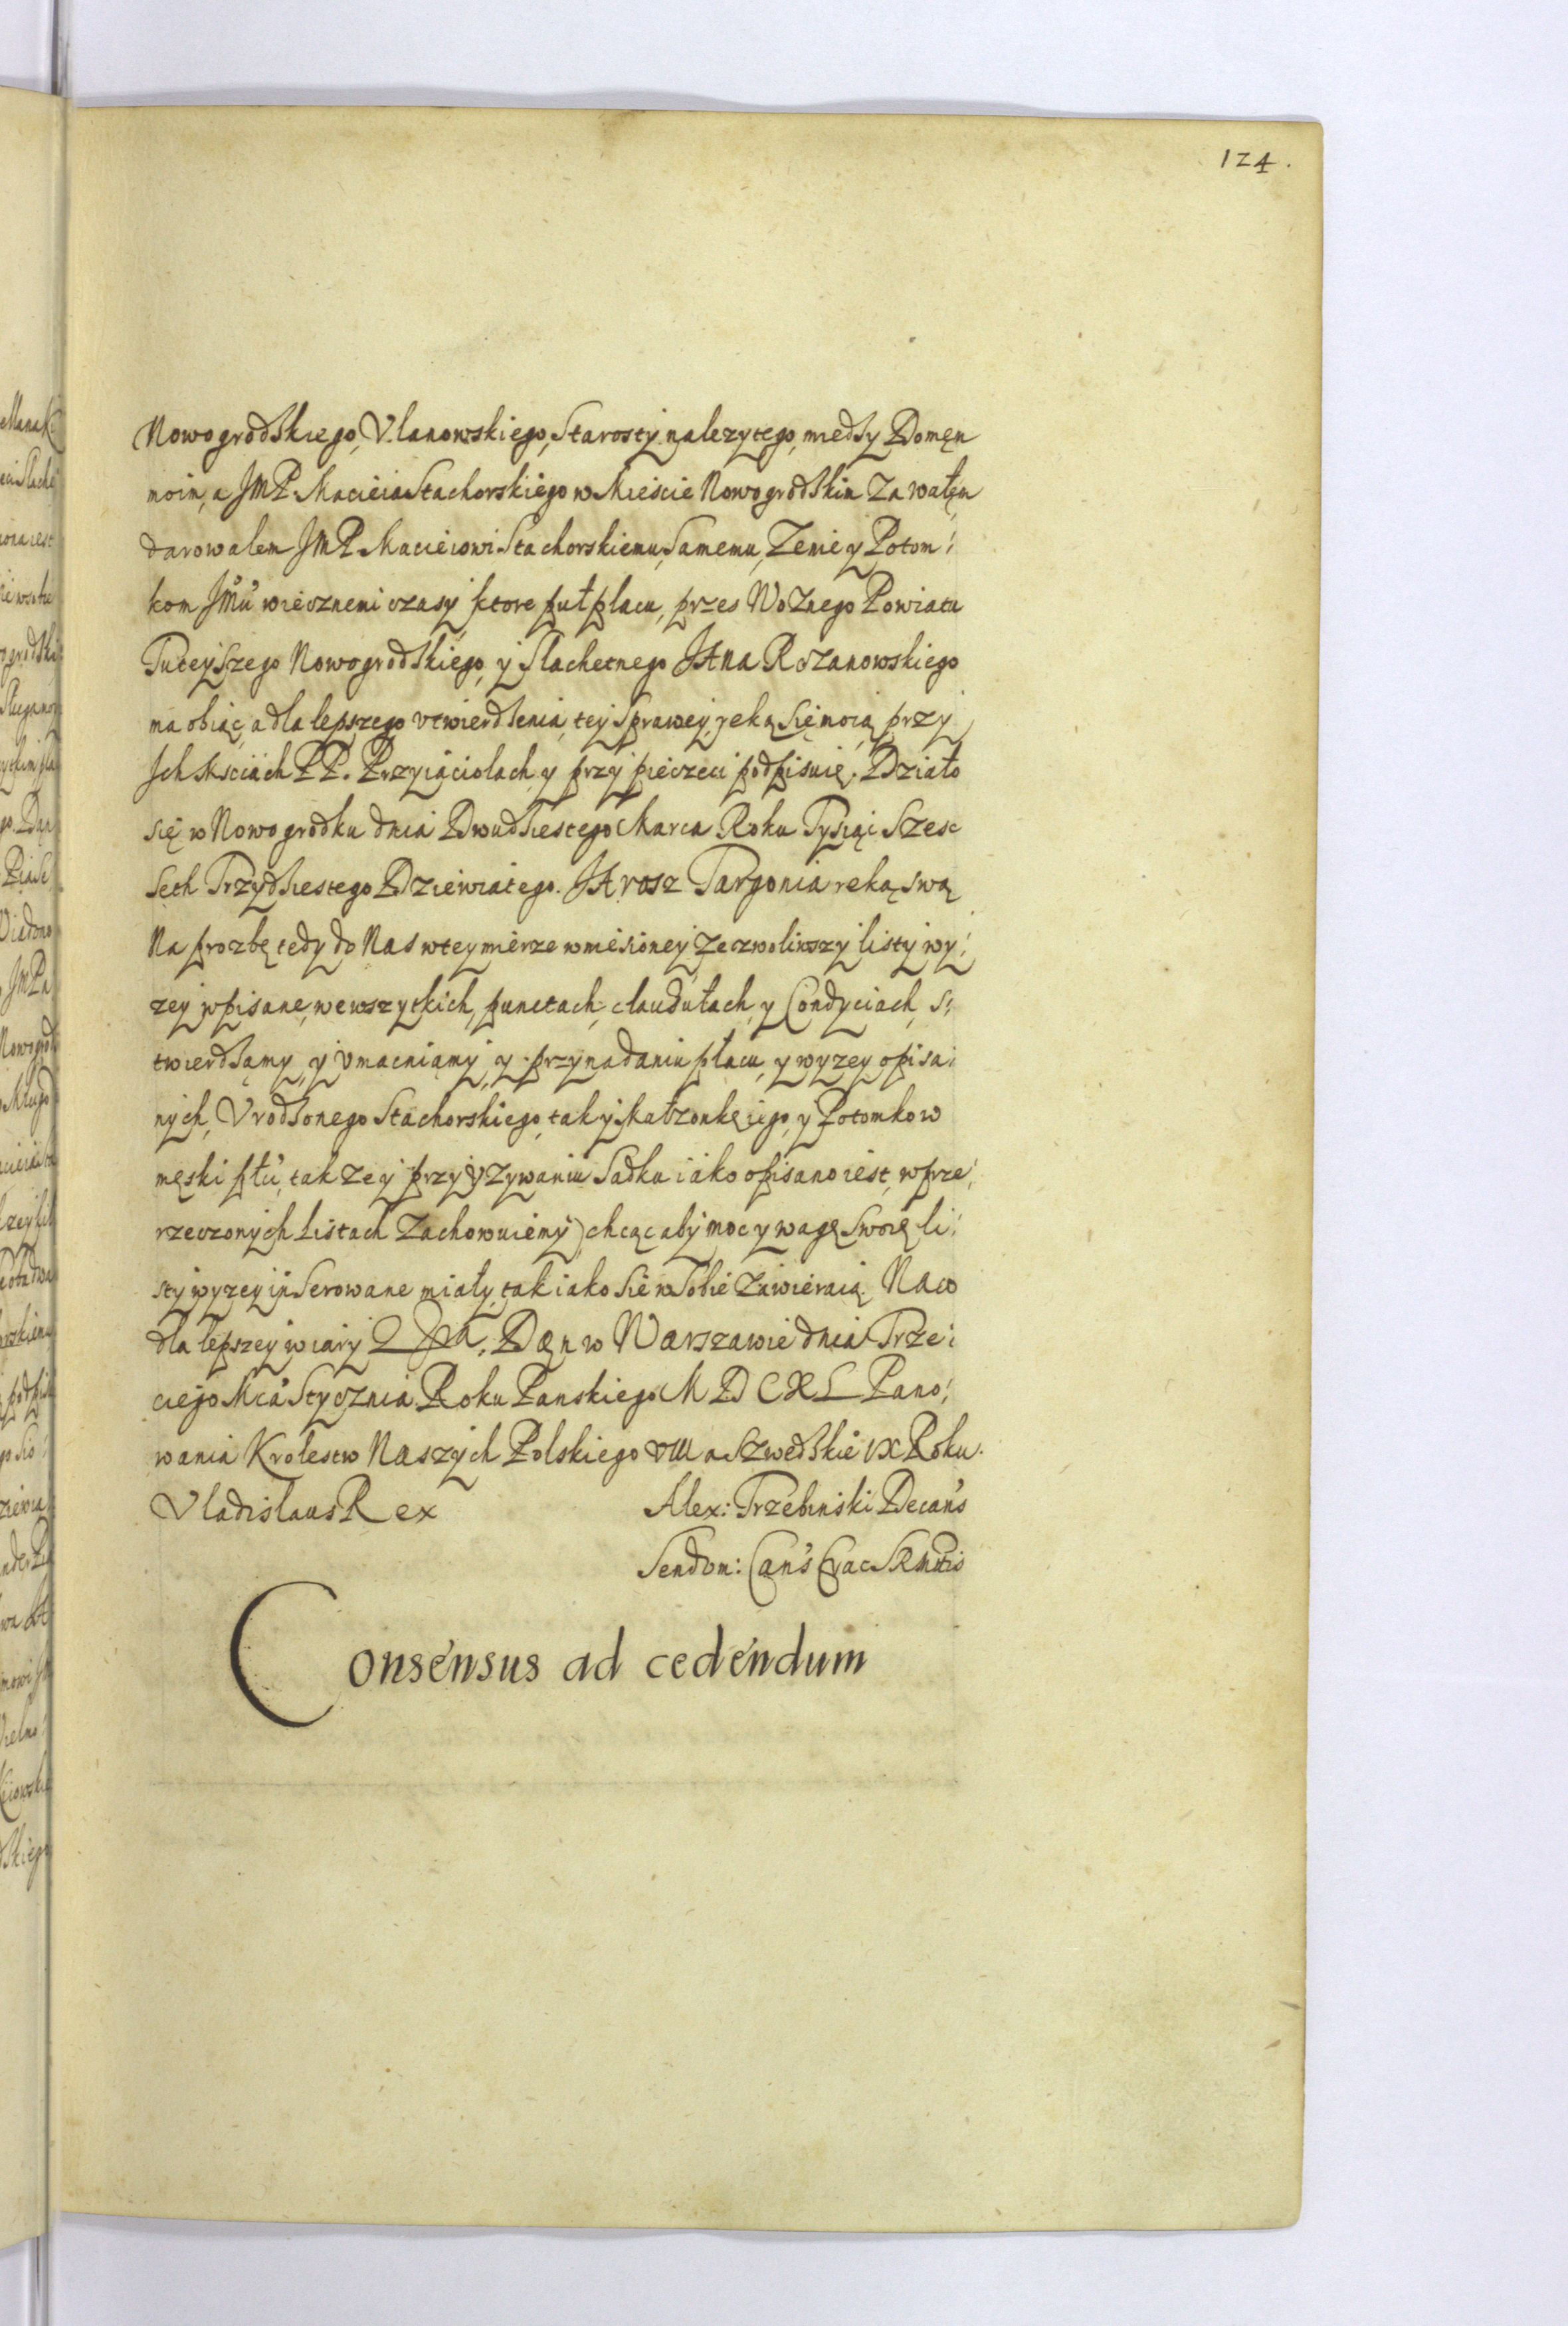 124.
Nowogrodskiego, Vlanowskiego, Starosty nalezytego, miedsy Domęn
moim, a JMP. Macieia Stachorskiego w Miescie Nowogrodskim Za wałęm
darowalem JMP. Macieiowi Stachorskiemu, Samemu, Zenie y Potom:
kom Jmu wiecznemi czasy ktore puł placu, przes Woznego Powiatu
Tuteyszego Nowogrodskiego, y Slachetnego JAna Rozanowskiego
ma obiąc, a dla lepszego vtwierdsenia, tey Sprawey, reką Się moią przy
Ich Msciach PP. Przyiaciolach y przy pieczeci podpisuię. Działo
się w Nowogrodku dnia Dwudsiestego Marca Roku Tysiąc Szesc
Seth Trzydsiestego Dziewiatego. JArosz Targonia reką swą
Na prozbę tedy do Nas w tey mierze wniesioney zezwoliwszy listy wy:
zey wpisane, we wszytkich, punctach, claudułach, y Condyciach, s:
twierdsamy, y vmacniamy, y przy nadaniu płacu, y wyzey opisa:
nych, Vrodsonego Stachorskiego, tak y Małzonkę iego, y Potomkow
męski płci, tak ze y przy vzywaniu Sadku iako opisano iest, w prze:
rzeczonych Listach Zachowuiemy, chcąc aby moc y wagę Swoię li:
sty wyzey inserowane miały, tak iako Sie w Sobie zawieraią. Na co
dla lepszey wiary Dąn w Warszawie dnia Trze:
ciego Mca Stycznia Roku Panskiego MDCXL Pano:
wania Krolestw Naszych Polskiego VIII a Szwedskie IX Roku.
Vladislaus Rex Alex: Trzebinski Decan's
Sendom: Can's Crac SRMttis
Consensus ad cedendum